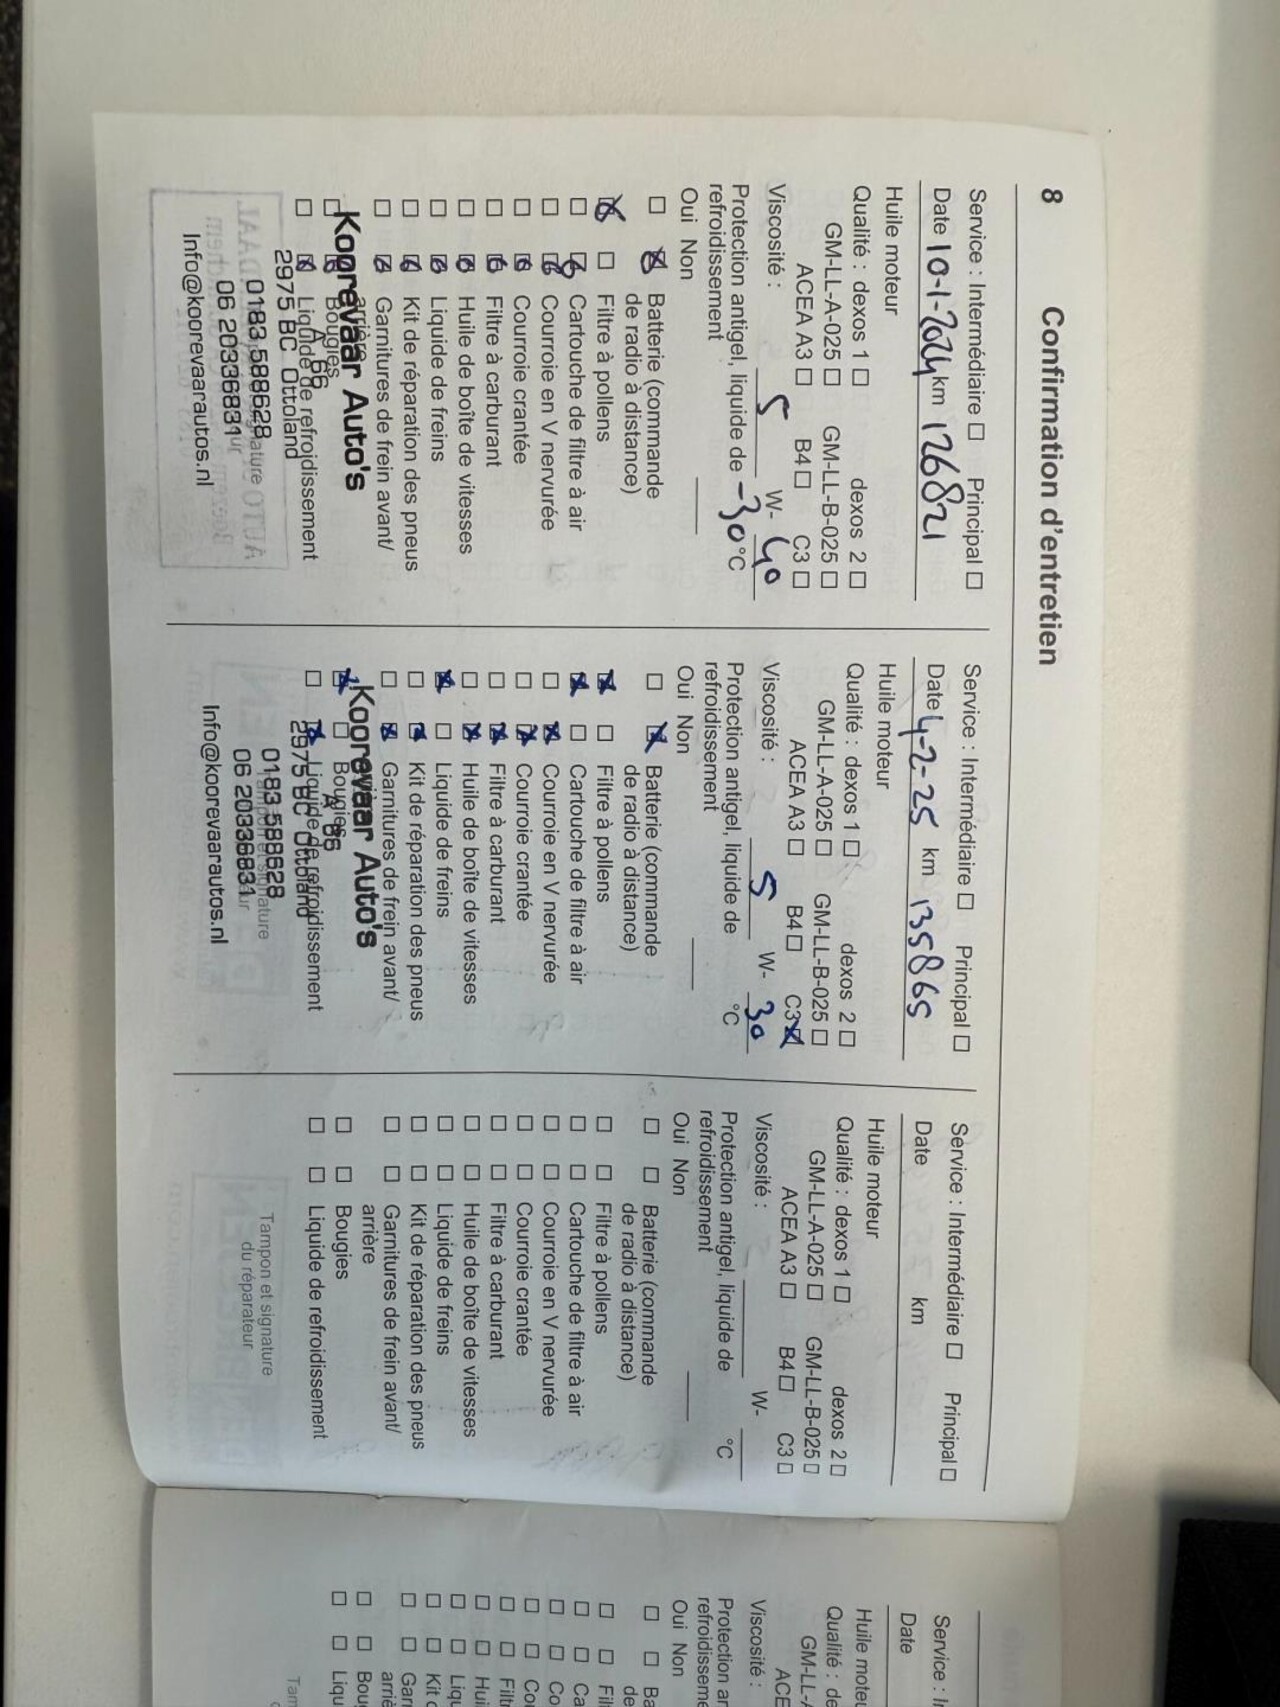 8 Confirmation d'entretien
Service : Intermédiaire □ Principal □
Date 10-1-2024 km 126821
Huile moteur
Qualité : dexos 1 □ dexos 2 □
GM-LL-A-025 □ GM-LL-B-025 □
ACEA A3 □ B4 □ C3 □
Viscosité : 5 W- 40
Protection antigel, liquide de
refroidissement -30 °C
Oui Non
□ ☒ Batterie (commande
de radio à distance)
☒ □ Filtre à pollens
□ ☒ Cartouche de filtre à air
□ ☒ Courroie en V nervurée
□ ☒ Courroie crantée
□ ☒ Filtre à carburant
□ ☒ Huile de boîte de vitesses
□ ☒ Liquide de freins
□ ☒ Kit de réparation des pneus
□ ☒ Garnitures de frein avant/
arrière
□ ☒ Bougies
□ ☒ Liquide de refroidissement
Koorevaar Auto's
A 66
2975 BC Ottoland
0183 588628
06 20336831
Info@koorevaarautos.nl
Service : Intermédiaire □ Principal □
Date 4-2-25 km 135865
Huile moteur
Qualité : dexos 1 □ dexos 2 □
GM-LL-A-025 □ GM-LL-B-025 □
ACEA A3 □ B4 □ C3 ☒
Viscosité : 5 W- 30
Protection antigel, liquide de
refroidissement °C
Oui Non
□ ☒ Batterie (commande
de radio à distance)
☒ □ Filtre à pollens
☒ □ Cartouche de filtre à air
□ ☒ Courroie en V nervurée
□ ☒ Courroie crantée
□ ☒ Filtre à carburant
□ ☒ Huile de boîte de vitesses
☒ □ Liquide de freins
□ ☒ Kit de réparation des pneus
□ ☒ Garnitures de frein avant/
☒ □ Bougies
□ ☒ Liquide de refroidissement
Tampon et signature
Koorevaar Auto's
A 66
2975 BC Ottoland
0183 588628
06 20336831
Info@koorevaarautos.nl
Service : Intermédiaire □ Principal □
Date km
Huile moteur
Qualité : dexos 1 □ dexos 2 □
GM-LL-A-025 □ GM-LL-B-025 □
ACEA A3 □ B4 □ C3 □
Viscosité : W-
Protection antigel, liquide de
refroidissement °C
Oui Non
□ □ Batterie (commande
de radio à distance)
□ □ Filtre à pollens
□ □ Cartouche de filtre à air
□ □ Courroie en V nervurée
□ □ Courroie crantée
□ □ Filtre à carburant
□ □ Huile de boîte de vitesses
□ □ Liquide de freins
□ □ Kit de réparation des pneus
□ □ Garnitures de frein avant/
arrière
□ □ Bougies
□ □ Liquide de refroidissement
Tampon et signature
du réparateur
Service : In
Date
Huile moteu
Qualité : de
GM-LL-A
ACE
Viscosité :
Protection ar
refroidisseme
Oui Non
□ □ Ba
de
□ □ Fil
□ □ Ca
□ □ Co
□ □ Cou
□ □ Filtr
□ □ Huil
□ □ Liqu
□ □ Kit d
□ □ Garn
arriè
□ □ Boug
□ □ Liqu
Tam